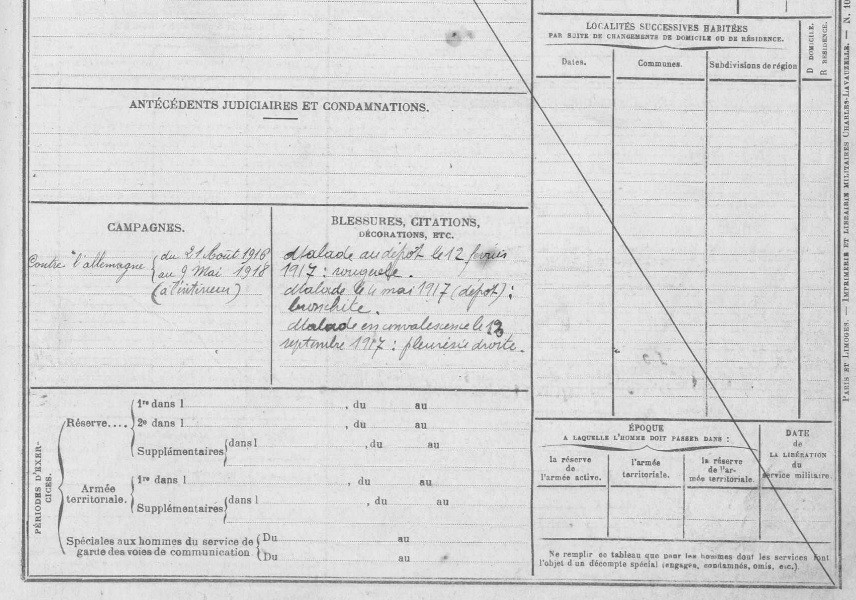 LOCALITÉS SUCCESSIVES HABITÉES
PAR SUITE DE CHANGEMENTS DE DOMICILE OU DE RÉSIDENCE.
Dates.
Communes.
Subdivisions de région
D DOMICILE.
R RÉSIDENCE.
ANTÉCÉDENTS JUDICIAIRES ET CONDAMNATIONS.
CAMPAGNES.
Contre l'allemagne
du 21 Août 1916
au 9 Mai 1918
(à l'intérieur)
BLESSURES, CITATIONS,
DÉCORATIONS, ETC.
Malade au dépôt le 12 février
1917 : rougeole.
Malade le 4 mai 1917 (dépôt) :
bronchite.
Malade en convalescence le 12
septembre 1917 : pleurésie droite.
PÉRIODES D'EXER-
CICES.
Réserve....
1re dans l , du au
2e dans l , du au
Supplémentaires dans l , du au
Armée
territoriale.
1re dans l , du au
Supplémentaires dans l , du au
Spéciales aux hommes du service de
garde des voies de communication
Du au
Du au
ÉPOQUE
A LAQUELLE L'HOMME DOIT PASSER DANS :
la réserve
de
l'armée active.
l'armée
territoriale.
la réserve
de l'ar-
mée territoriale.
DATE
de
LA LIBÉRATION
du
service militaire.
Ne remplir ce tableau que pour les hommes dont les services font
l'objet d'un décompte spécial (engagés, condamnés, omis, etc.).
PARIS ET LIMOGES. — IMPRIMERIE ET LIBRAIRIE MILITAIRES CHARLES-LAVAUZELLE. — N. 10